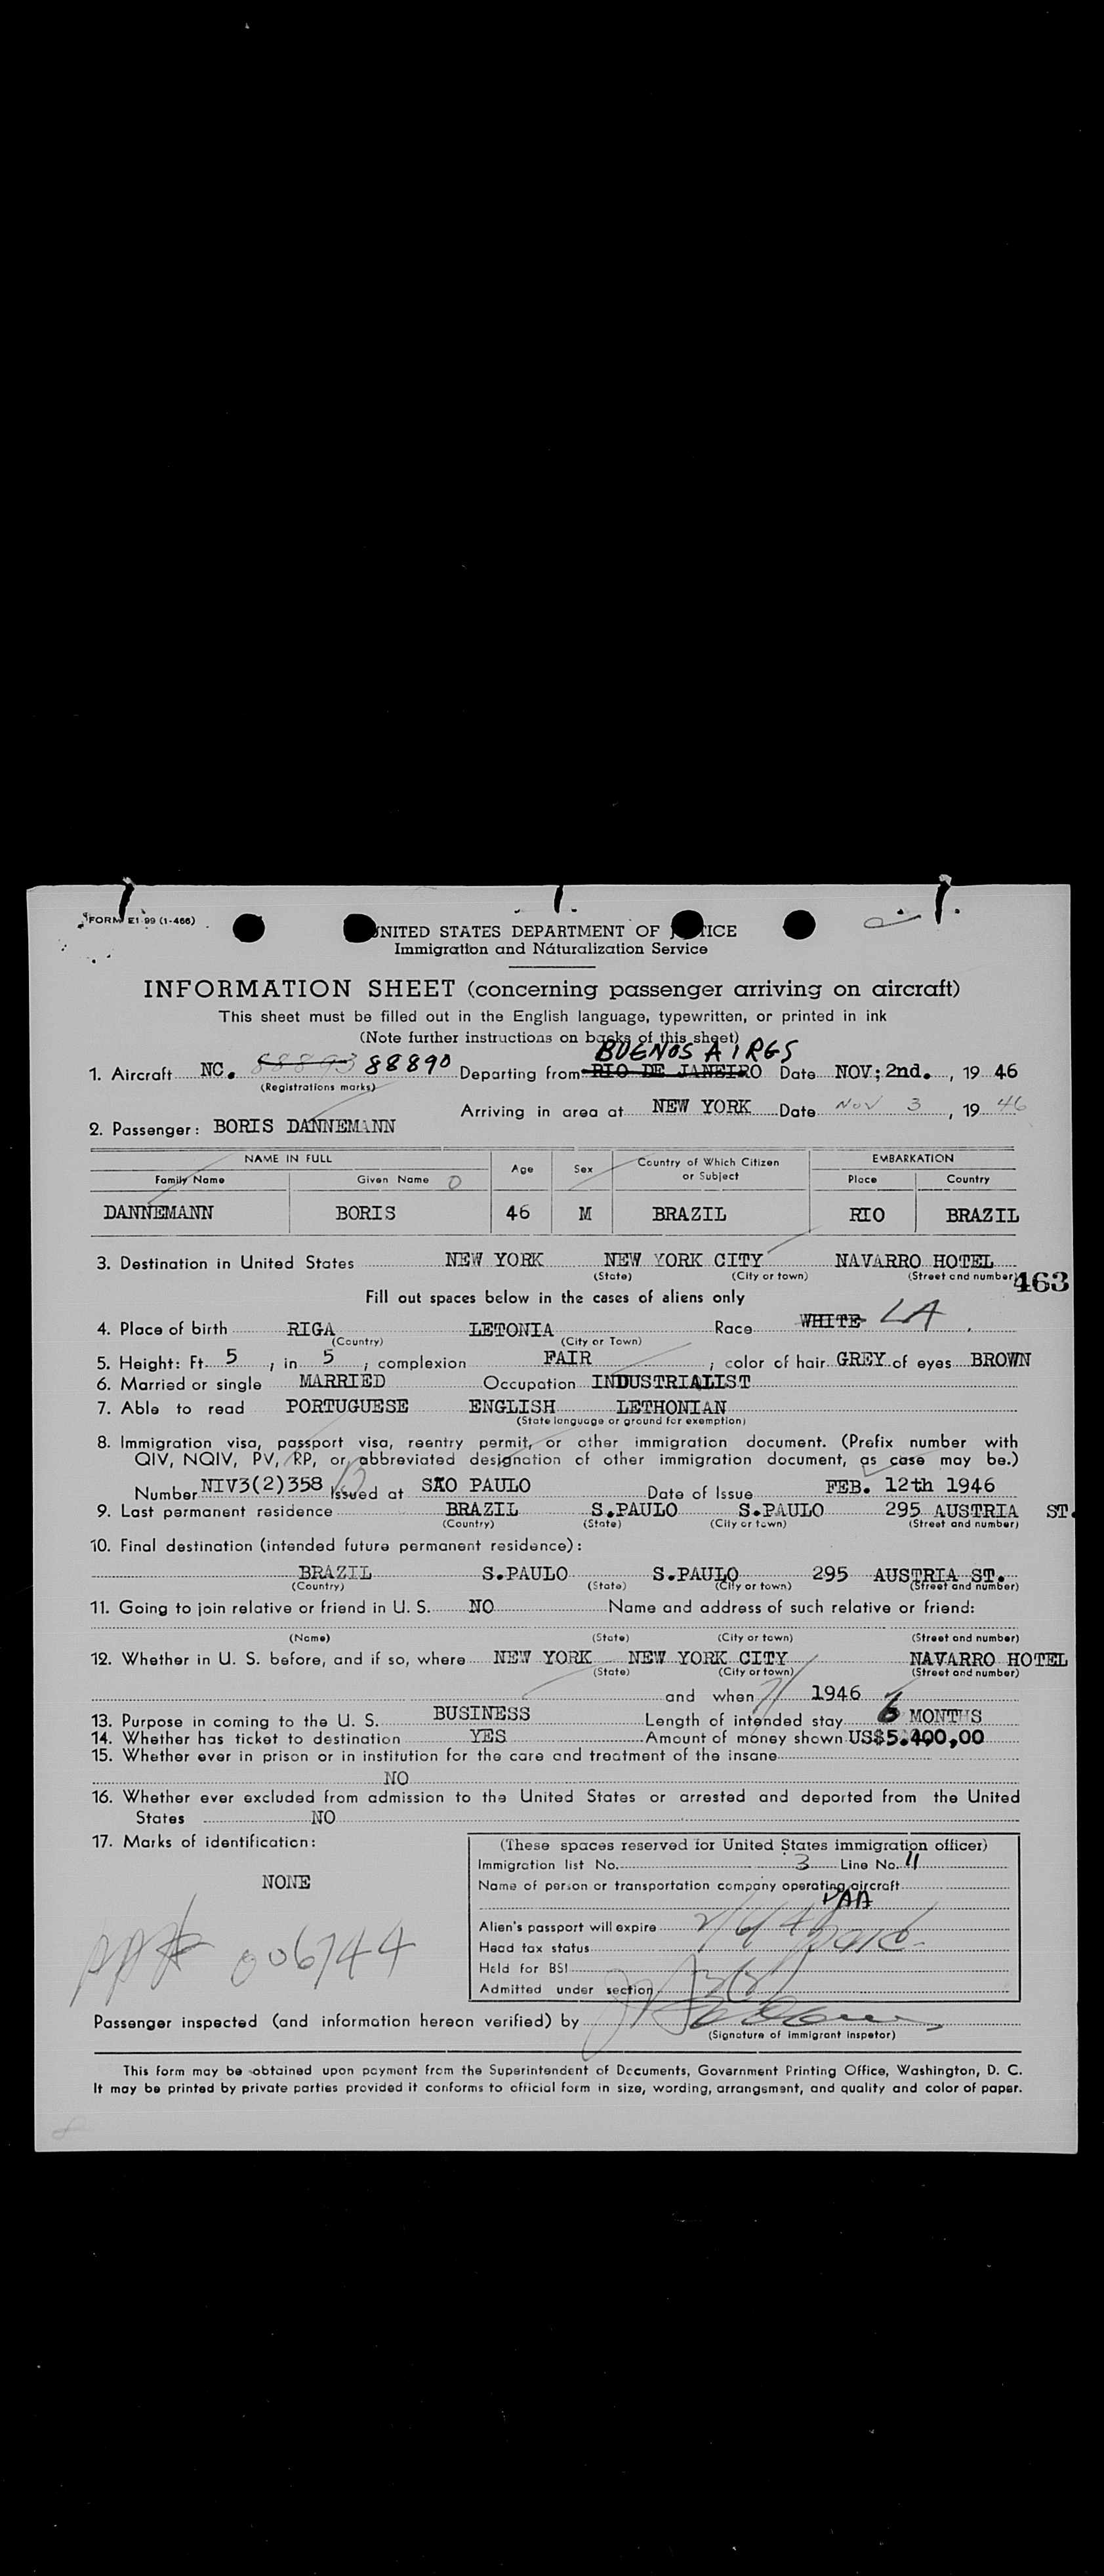 FORM E1 99 (1-466)
UNITED STATES DEPARTMENT OF JUSTICE
Immigration and Naturalization Service
INFORMATION SHEET (concerning passenger arriving on aircraft)
This sheet must be filled out in the English language, typewritten, or printed in ink
(Note further instructions on backs of this sheet)
BUENOS AIRES
1. Aircraft NC. 88893 88890 Departing from RIO DE JANEIRO Date NOV; 2nd. , 19 46
(Registrations marks)
Arriving in area at NEW YORK Date NOV 3 , 19 46
2. Passenger: BORIS DANNEMANN
NAME IN FULL Age Sex Country of Which Citizen or Subject EMBARKATION
Family Name Given Name Place Country
DANNEMANN BORIS 46 M BRAZIL RIO BRAZIL
3. Destination in United States NEW YORK NEW YORK CITY NAVARRO HOTEL
(State) (City or town) (Street and number)
463
Fill out spaces below in the cases of aliens only
4. Place of birth RIGA LETONIA Race WHITE LA
(Country) (City or Town)
5. Height: Ft. 5 , in 5 , complexion FAIR ; color of hair GREY of eyes BROWN
6. Married or single MARRIED Occupation INDUSTRIALIST
7. Able to read PORTUGUESE ENGLISH LETHONIAN
(State language or ground for exemption)
8. Immigration visa, passport visa, reentry permit, or other immigration document. (Prefix number with
QIV, NQIV, PV, RP, or abbreviated designation of other immigration document, as case may be.)
Number NIV3(2)358 Issued at SÃO PAULO Date of Issue FEB. 12th 1946
9. Last permanent residence BRAZIL S.PAULO S.PAULO 295 AUSTRIA ST.
(Country) (State) (City or town) (Street and number)
10. Final destination (intended future permanent residence):
BRAZIL S.PAULO S.PAULO 295 AUSTRIA ST.
(Country) (State) (City or town) (Street and number)
11. Going to join relative or friend in U. S. NO Name and address of such relative or friend:
(Name) (State) (City or town) (Street and number)
12. Whether in U. S. before, and if so, where NEW YORK NEW YORK CITY NAVARRO HOTEL
(State) (City or town) (Street and number)
and when 1946
13. Purpose in coming to the U. S. BUSINESS Length of intended stay 6 MONTHS
14. Whether has ticket to destination YES Amount of money shown US$5.400,00
15. Whether ever in prison or in institution for the care and treatment of the insane
NO
16. Whether ever excluded from admission to the United States or arrested and deported from the United
States NO
17. Marks of identification:
NONE
PP# 006744
(These spaces reserved for United States immigration officer)
Immigration list No. 3 Line No. 11
Name of person or transportation company operating aircraft
PAA
Alien's passport will expire
Head tax status
Held for BSI
Admitted under section
Passenger inspected (and information hereon verified) by
(Signature of immigrant inspetor)
This form may be obtained upon payment from the Superintendent of Documents, Government Printing Office, Washington, D. C.
It may be printed by private parties provided it conforms to official form in size, wording, arrangement, and quality and color of paper.